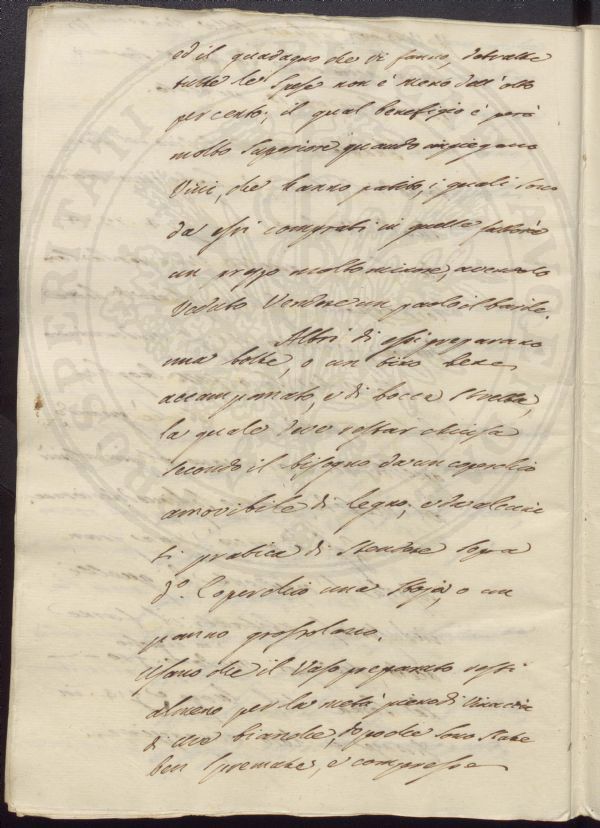 ed il guadagno che vi fanno, detratte
tutte le Spese non è meno dell'otto
per cento; il qual benefizio è però
molto Superiore, quando impiegano
Vini, che hanno patito, i quali sono
da essi comprati in quelle fattorie
un prezzo molto minore, avendolo
Veduto Vendere un paolo il barile.
Altri di essi preparano
una botte, o un tino bene
accampanato, e di bocca stretta,
la quale deve restar chiusa
secondo il bisogno da un coperchio
amovibile di legno; e da alcuni
si pratica di Stendere sopra
d.º Coperchio una Stoja, o un
panno grossolano.
Usano che il Vaso preparato resti
almeno per la metà pieno di Vinaccie
di uve bianche, dopo che sono State
ben Spremute, e compresse
PROSPERITATI AUGENDAE